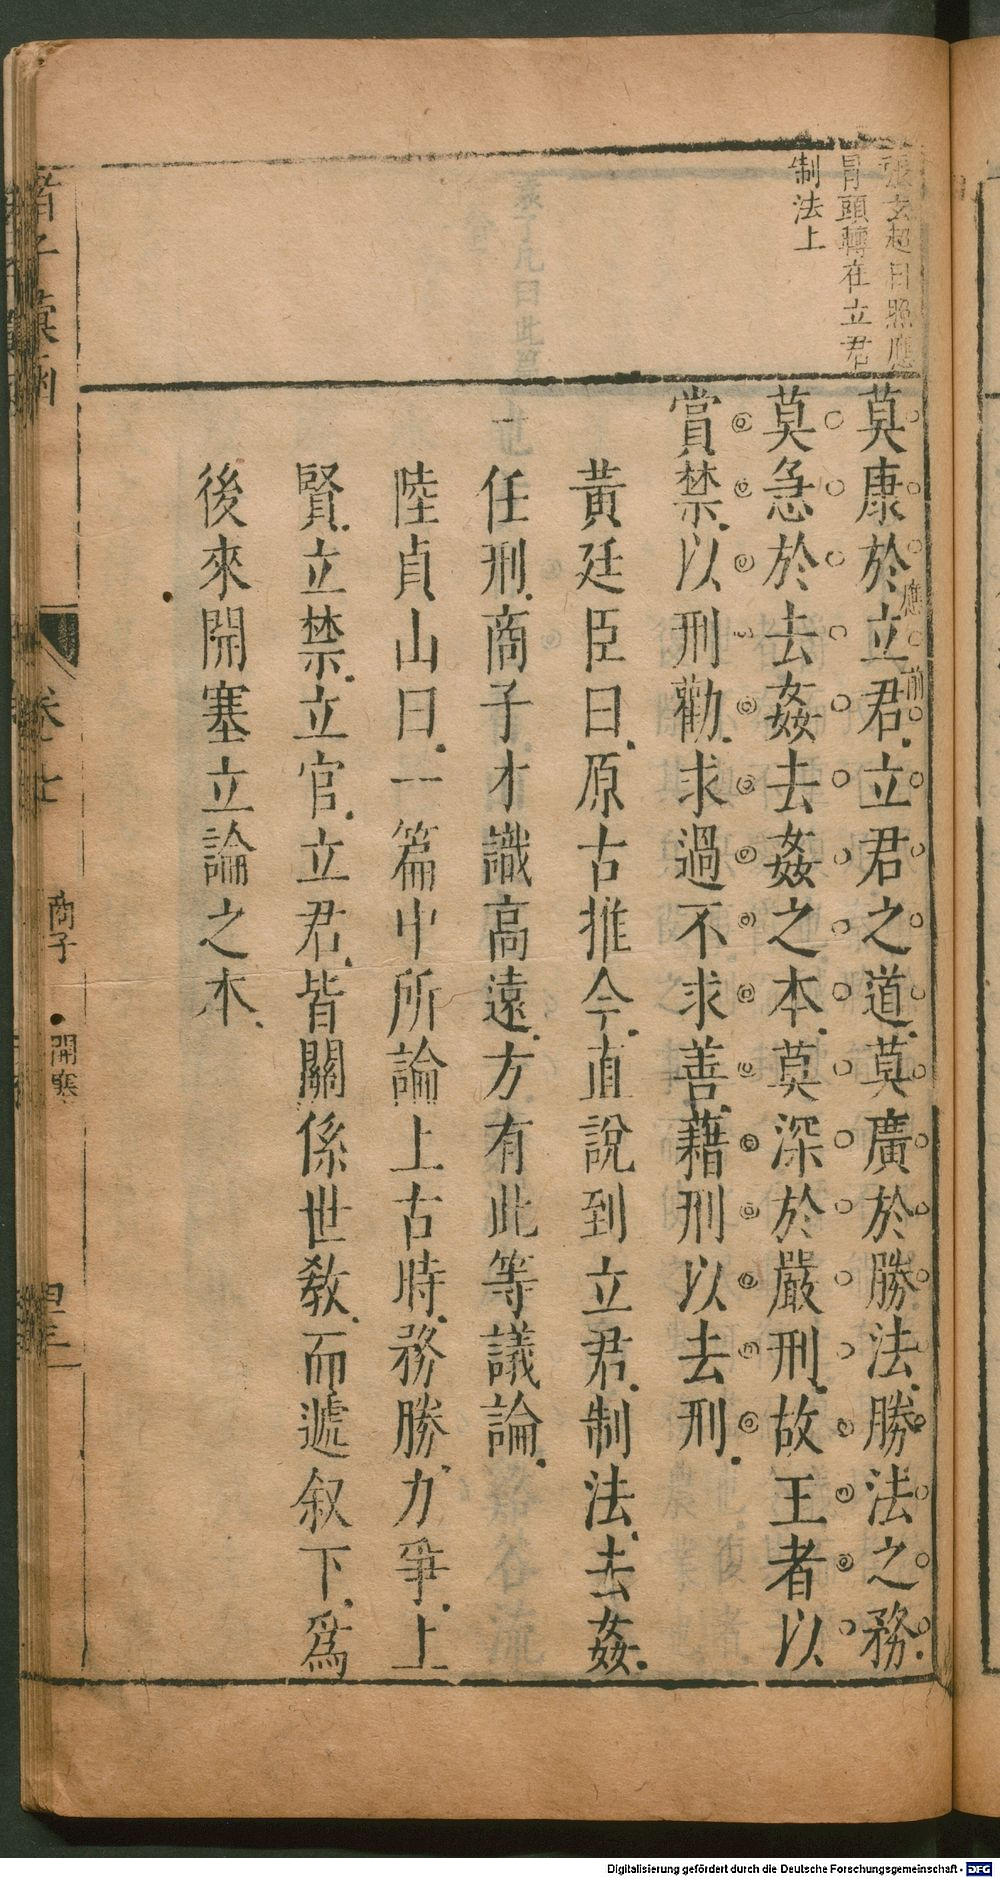 張玄超曰照應
冐頭轉在立君
制法上
莫康於立君立君之道莫廣於勝法勝法之務
應前
莫急於去姦去姦之本莫深於嚴刑故王者以
賞禁以刑勸求過不求善藉刑以去刑
黃廷臣曰原古推今直說到立君制法去姦
任刑商子才識高遠方有此等議論
陸貞山曰一篇中所論上古時務勝力爭上
賢立禁立官立君皆關係世教而遞叙下爲
後來開塞立論之本
諸子彙函
卷七
商子
開塞
Digitalisierung gefördert durch die Deutsche Forschungsgemeinschaft - DFG